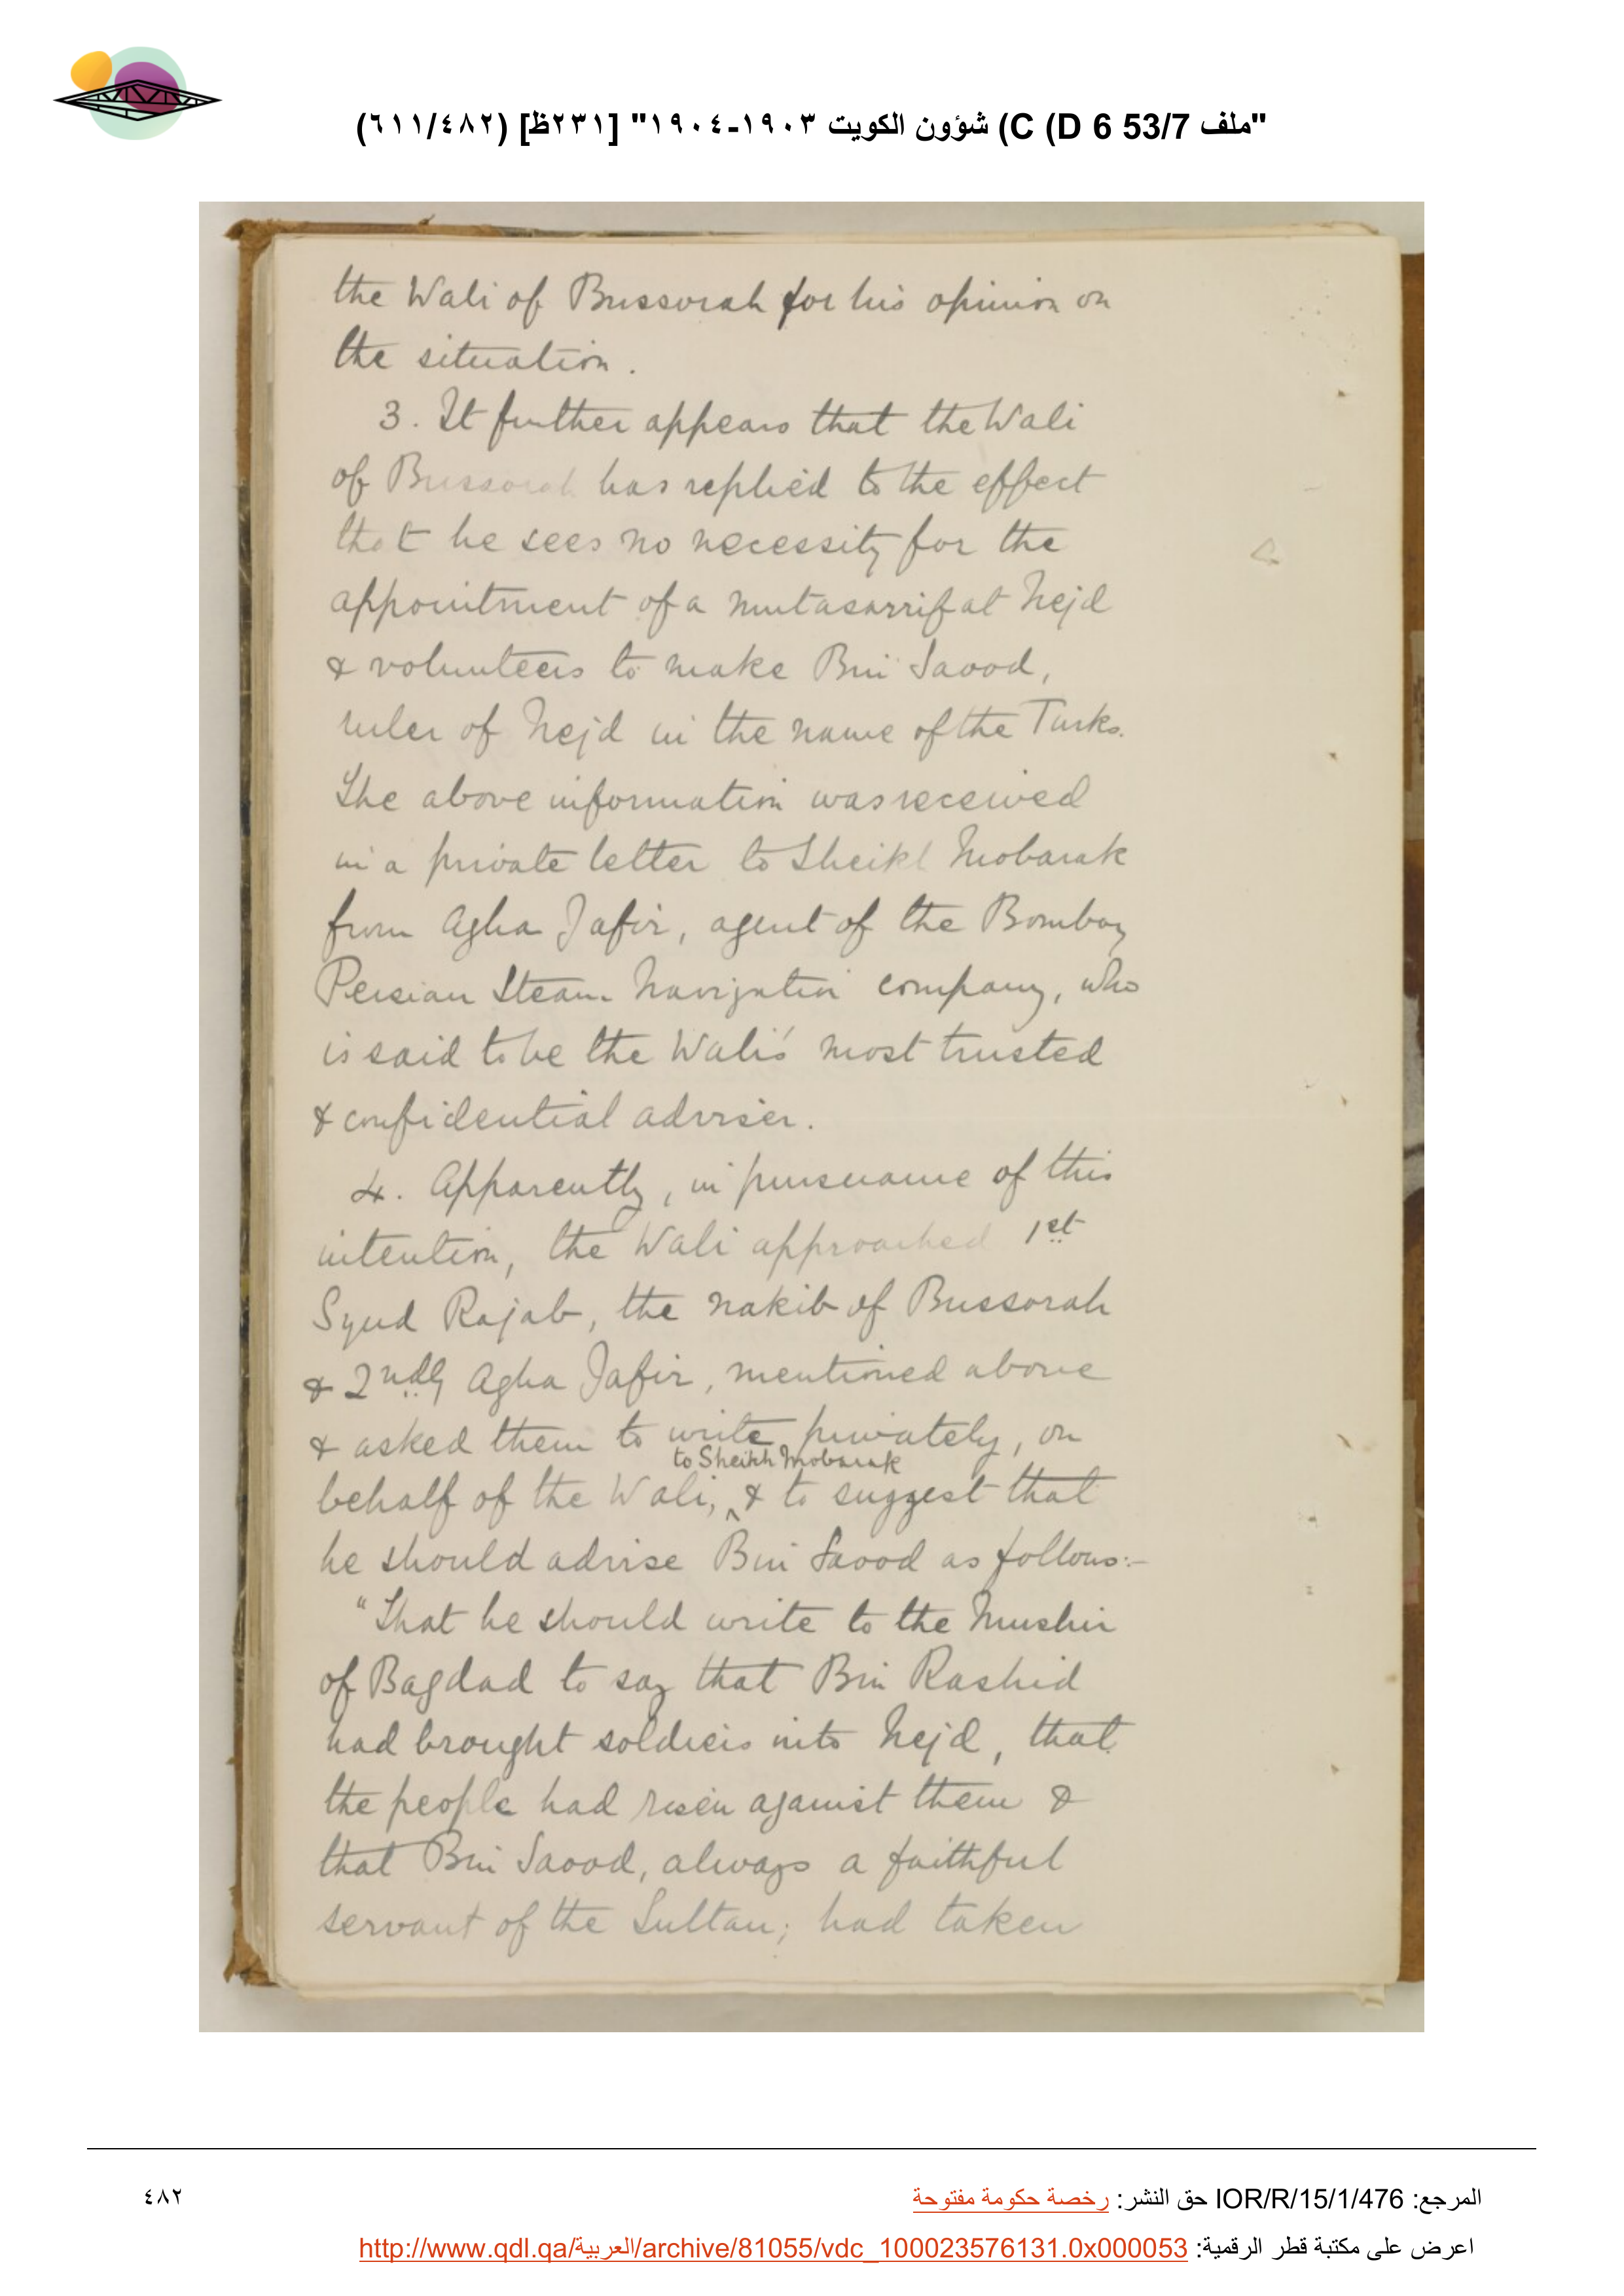 "ملف 53/7 C (D 6) شؤون الكويت ١٩٠٣-١٩٠٤" [٢٣١ظ] (٦١١/٤٨٢)
the Wali of Bussorah for his opinion on
the situation.
3. It further appears that the Wali
of Bussorah has replied to the effect
that he sees no necessity for the
appointment of a mutasarrif at Nejd
& volunteers to make Bin Saood,
ruler of Nejd in the name of the Turks.
The above information was received
in a private letter to Sheikh Mobarak
from Agha Jafir, agent of the Bombay
Persian Steam Navigation company, who
is said to be the Wali's most trusted
& confidential adviser.
4. Apparently, in pursuance of this
intention, the Wali approached 1st
Syud Rajab, the nakib of Bussorah
& 2ndly Agha Jafir, mentioned above
& asked them to write privately, on
to Sheikh Mobarak
behalf of the Wali, ^ & to suggest that
he should advise Bin Saood as follows:-
"That he should write to the Mushir
of Bagdad to say that Bin Rashid
had brought soldiers into Nejd, that
the people had risen against them &
that Bin Saood, always a faithful
servant of the Sultan; had taken
المرجع: IOR/R/15/1/476 حق النشر: رخصة حكومة مفتوحة
٤٨٢
اعرض على مكتبة قطر الرقمية: http://www.qdl.qa/العربية/archive/81055/vdc_100023576131.0x000053